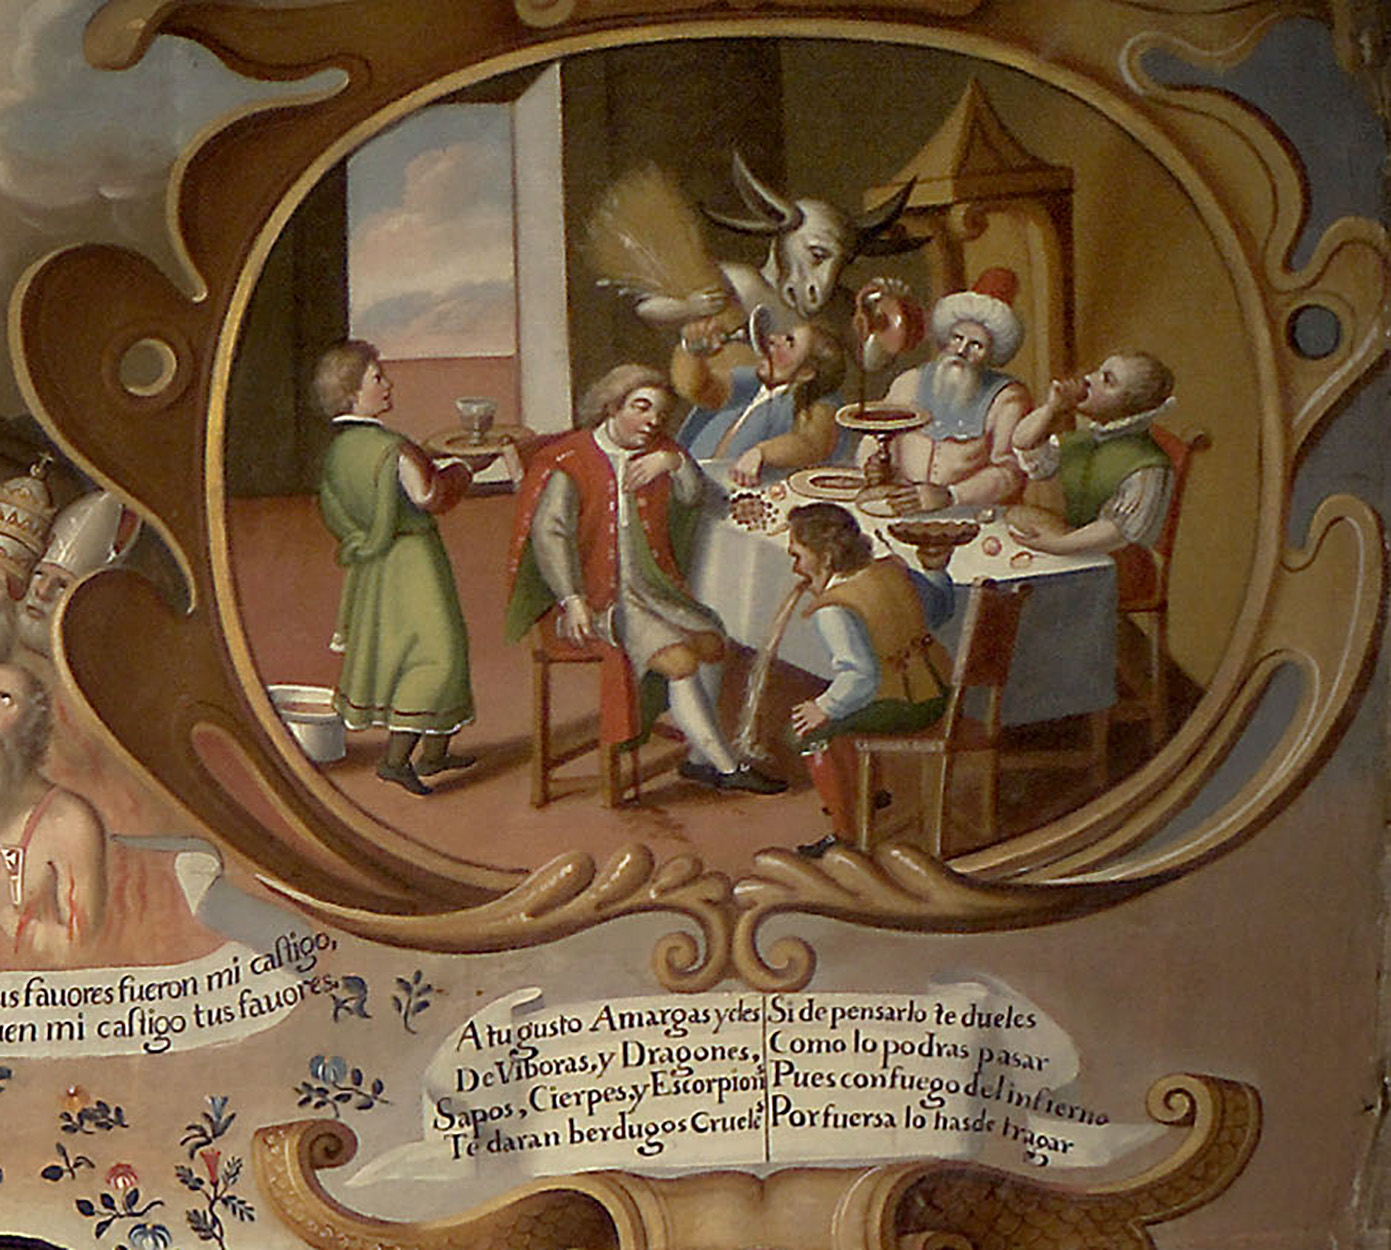 us fauores fueron mi castigo,
uen mi castigo tus fauores.
A tu gusto Amargas y cles
De Viboras, y Dragones,
Sapos, Cierpes, y Escorpion^s
Te daran berdugos Cruele^s
Si de pensarlo te dueles
Como lo podras pasar
Pues con fuego del infierno
Por fuersa lo has de tragar